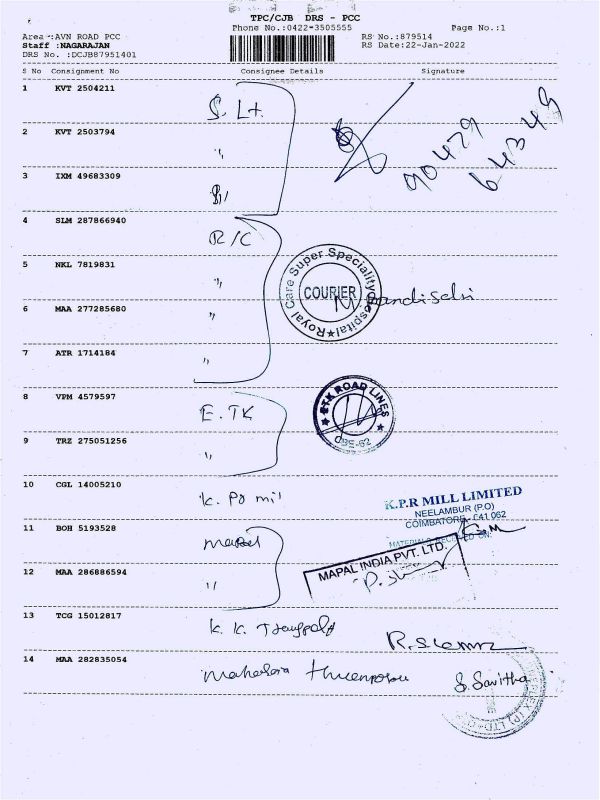 TPC/CJB DRS - PCC
Phone No.:0422-3505555
Page No.:1
Area :AVN ROAD PCC
RS No.:879514
Staff :NAGARAJAN
RS Date:22-Jan-2022
DRS No. :DCJB87951401
S No Consignment No Consignee Details Signature
1 KVT 2504211
S. Lt.
2 KVT 2503794
"
90429
64349
3 IXM 49683309
4 SLM 287866940
R/C
5 NKL 7819831
"
Royal Care Super Speciality Hospital
COURIER
6 MAA 277285680
"
7 ATR 1714184
"
8 VPM 4579597
E. TK
ETK ROAD LINES
CBE-62
9 TRZ 275051256
"
10 CGL 14005210
K. PR mil
K.P.R MILL LIMITED
NEELAMBUR (P.O)
COIMBATORE - 641 062
11 BOH 5193528
Mapal
MAPAL INDIA PVT. LTD.
12 MAA 286886594
"
13 TCG 15012817
K. K.
14 MAA 282835054
S. Savitha